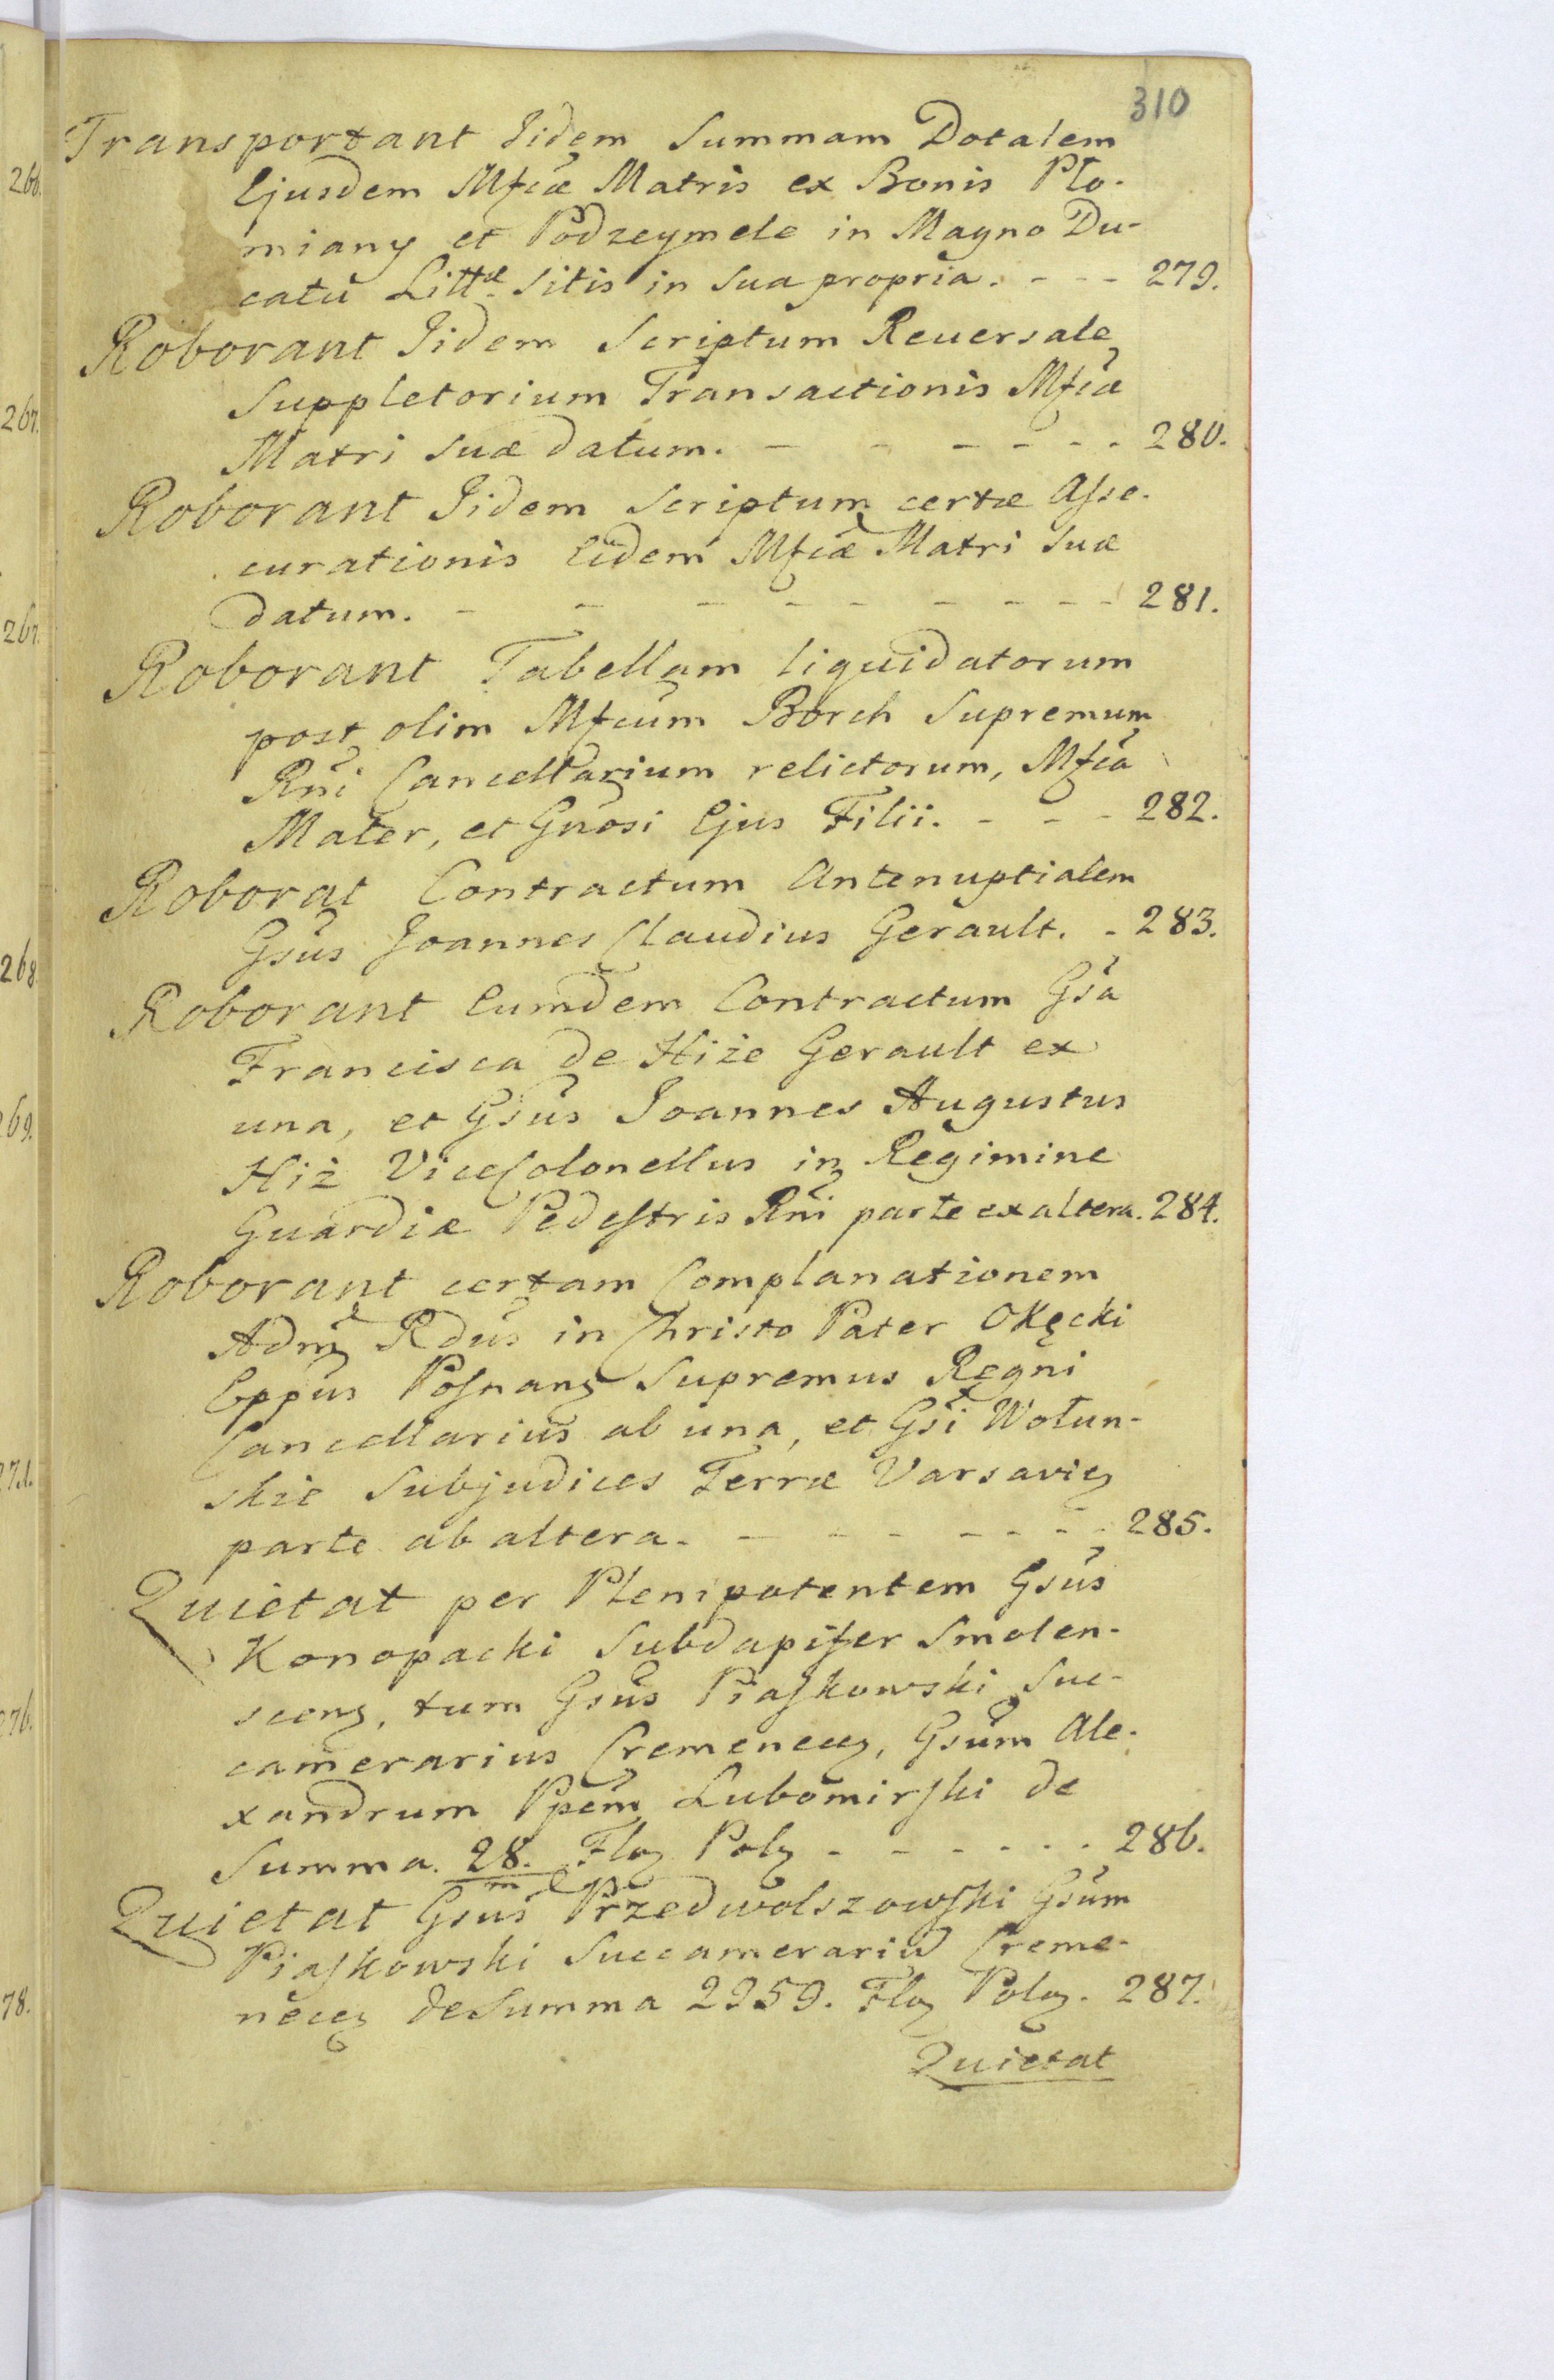 310
Transportant Iidem Summam Dotalem
Ejusdem Mfcæ Matris ex Bonis Plo-
miany et Podzeymele in Magno Du-
catu Littæ sitis in sua propria. - - - 279.
Roborant Iidem Scriptum Reuersale
Suppletorium Transactionis Mfcæ
Matri suæ datum. - - - - - - 280.
Roborant Iidem Scriptum certæ Asse-
curationis Eidem Mfcæ Matri suæ
datum. - - - - - - - - 281.
Roborant Tabellam liquidatorum
post olim Mfcum Borch Supremum
Rni Cancellarium relictorum, Mfca
Mater, et Gnosi Ejus Filii. - - - 282.
Roborat Contractum Antenuptialem
Gsus Joannes Claudius Gerault. - 283.
Roborant Eumdem Contractum Gsa
Francisca de Hiże Gerault ex
una, et Gsus Joannes Augustus
Hiż ViceColonellus in Regimine
Guardiæ Pedestris Rni parte ex altera. 284.
Roborant certam Complanationem
Adm Rdus in Christo Pater Okęcki
Eppus Posnan Supremus Regni
Cancellarius ab una, et Gsi Wołun-
skie Subjudices Terræ Varsavien
parte ab altera. - - - - - - 285.
Quietat per Plenipotentem Gsus
Konopacki Subdapifer Smolen-
scen, tum Gsus Piaskowski Suc-
camerarius Cremenecen, Gsum Ale-
xandrum Ppem Lubomirski de
Summa. 28. Flo Pol - - - - - - 286.
m
Quietat Gsus Przedwolszowski Gsum
Piaskowski Succamerariu Creme-
necen de Summa 2959. Flo Polo. 287.
Quietat
266.
267.
267.
268
269.
271.
276.
278.